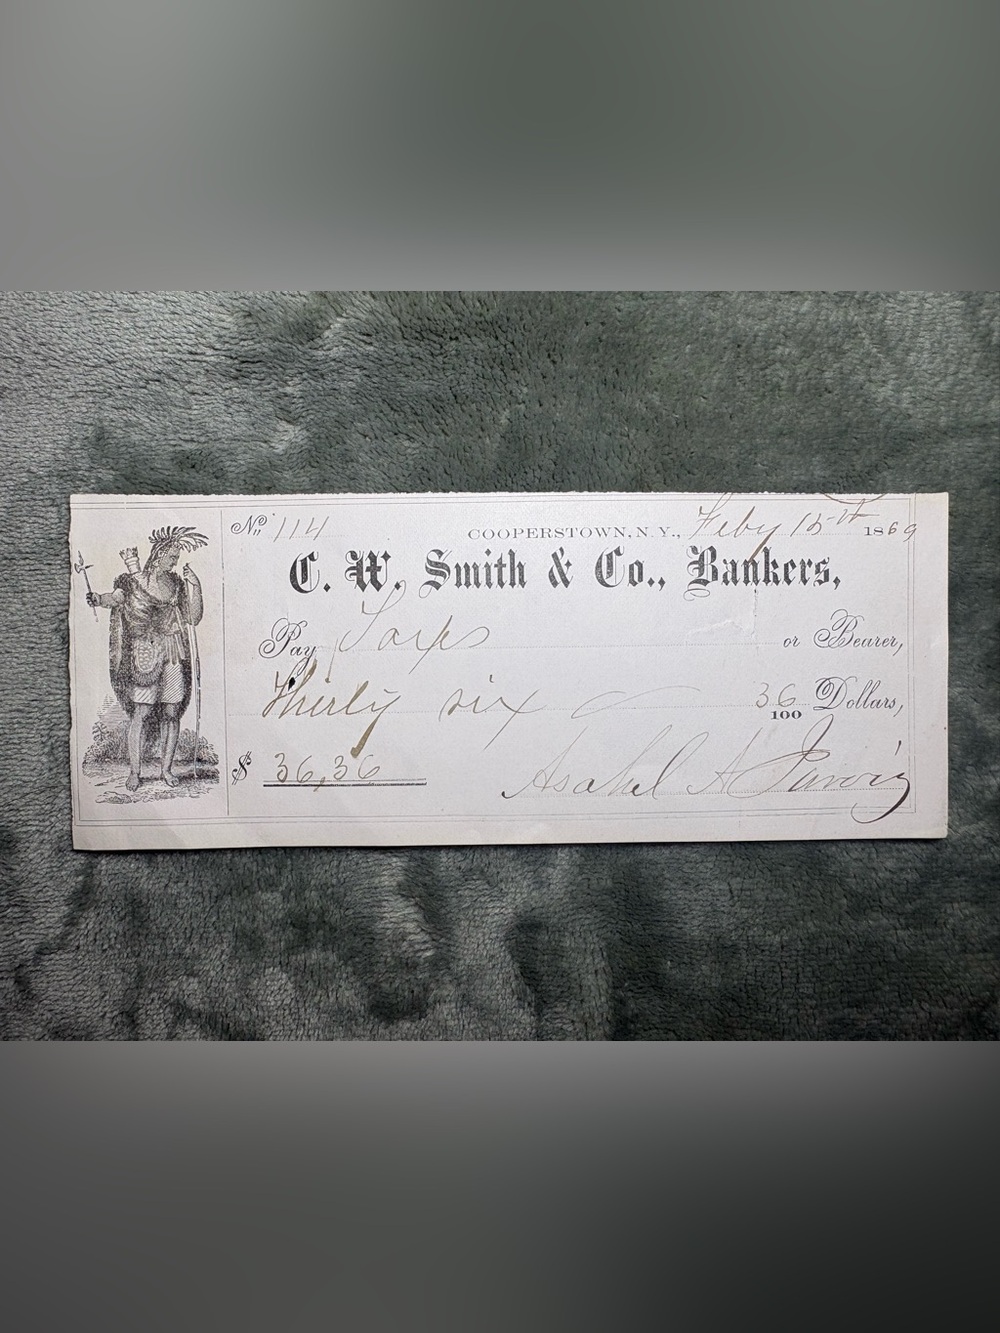 No. 114
COOPERSTOWN, N.Y., Feby 15th 1869
C. W. Smith & Co., Bankers,
Pay Taxes or Bearer,
Thirty six 36/100 Dollars,
$ 36,36 Asahel A Jarvis